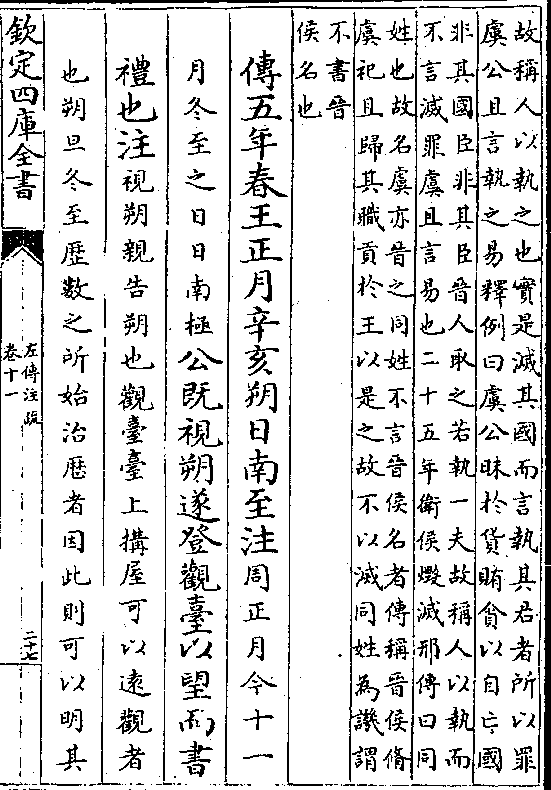 故稱人以執之也實是滅其國而言執其君者所以罪
虞公且言執之易釋例曰虞公昧於貨賄貪以自亡國
非其國臣非其臣晉人取之若執一夫故稱人以執而
不言滅罪虞且言易也二十五年衛侯燬滅邢傳曰同
姓也故名虞亦晉之同姓不言晉侯名者傳稱晉侯脩
虞祀且歸其職貢於王以是之故不以滅同姓為譏謂
不書晉
侯名也
傳五年春王正月辛亥朔日南至注周正月今十一
月冬至之日日南極公既視朔遂登觀臺以望而書
禮也注視朔親告朔也觀臺臺上搆屋可以遠觀者
也朔旦冬至歴數之所始治歴者因此則可以明其
欽定四庫全書
左傳注疏
卷十一
二十七